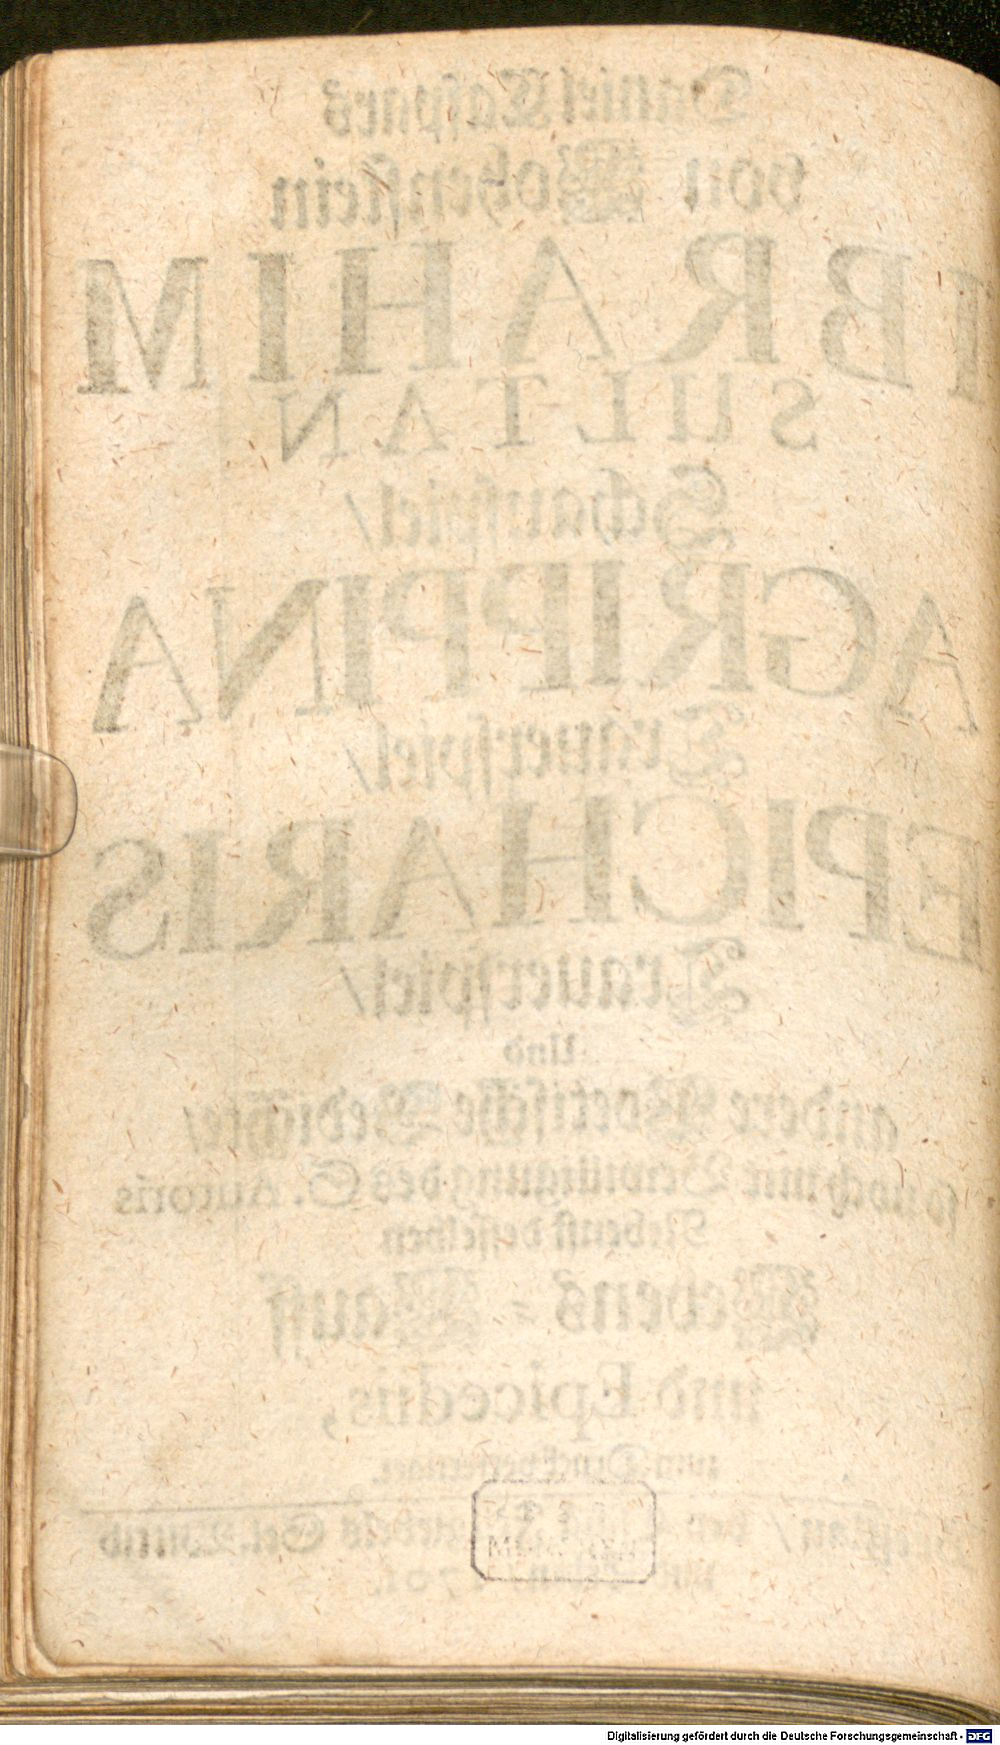 Daniel Caspars
von Lohenstein
IBRAHIM
SULTAN
Schauspiel/
AGRIPPINA
Trauerspiel/
EPICHARIS
Trauerspiel/
Und
andere Poetische Gedichte/
so noch mit Bewilligung des S. Autoris
Nebenst desselben
Lebens-Lauff
und Epicediis,
zum Druck
1701.
Digitalisierung gefördert durch die Deutsche Forschungsgemeinschaft - DFG